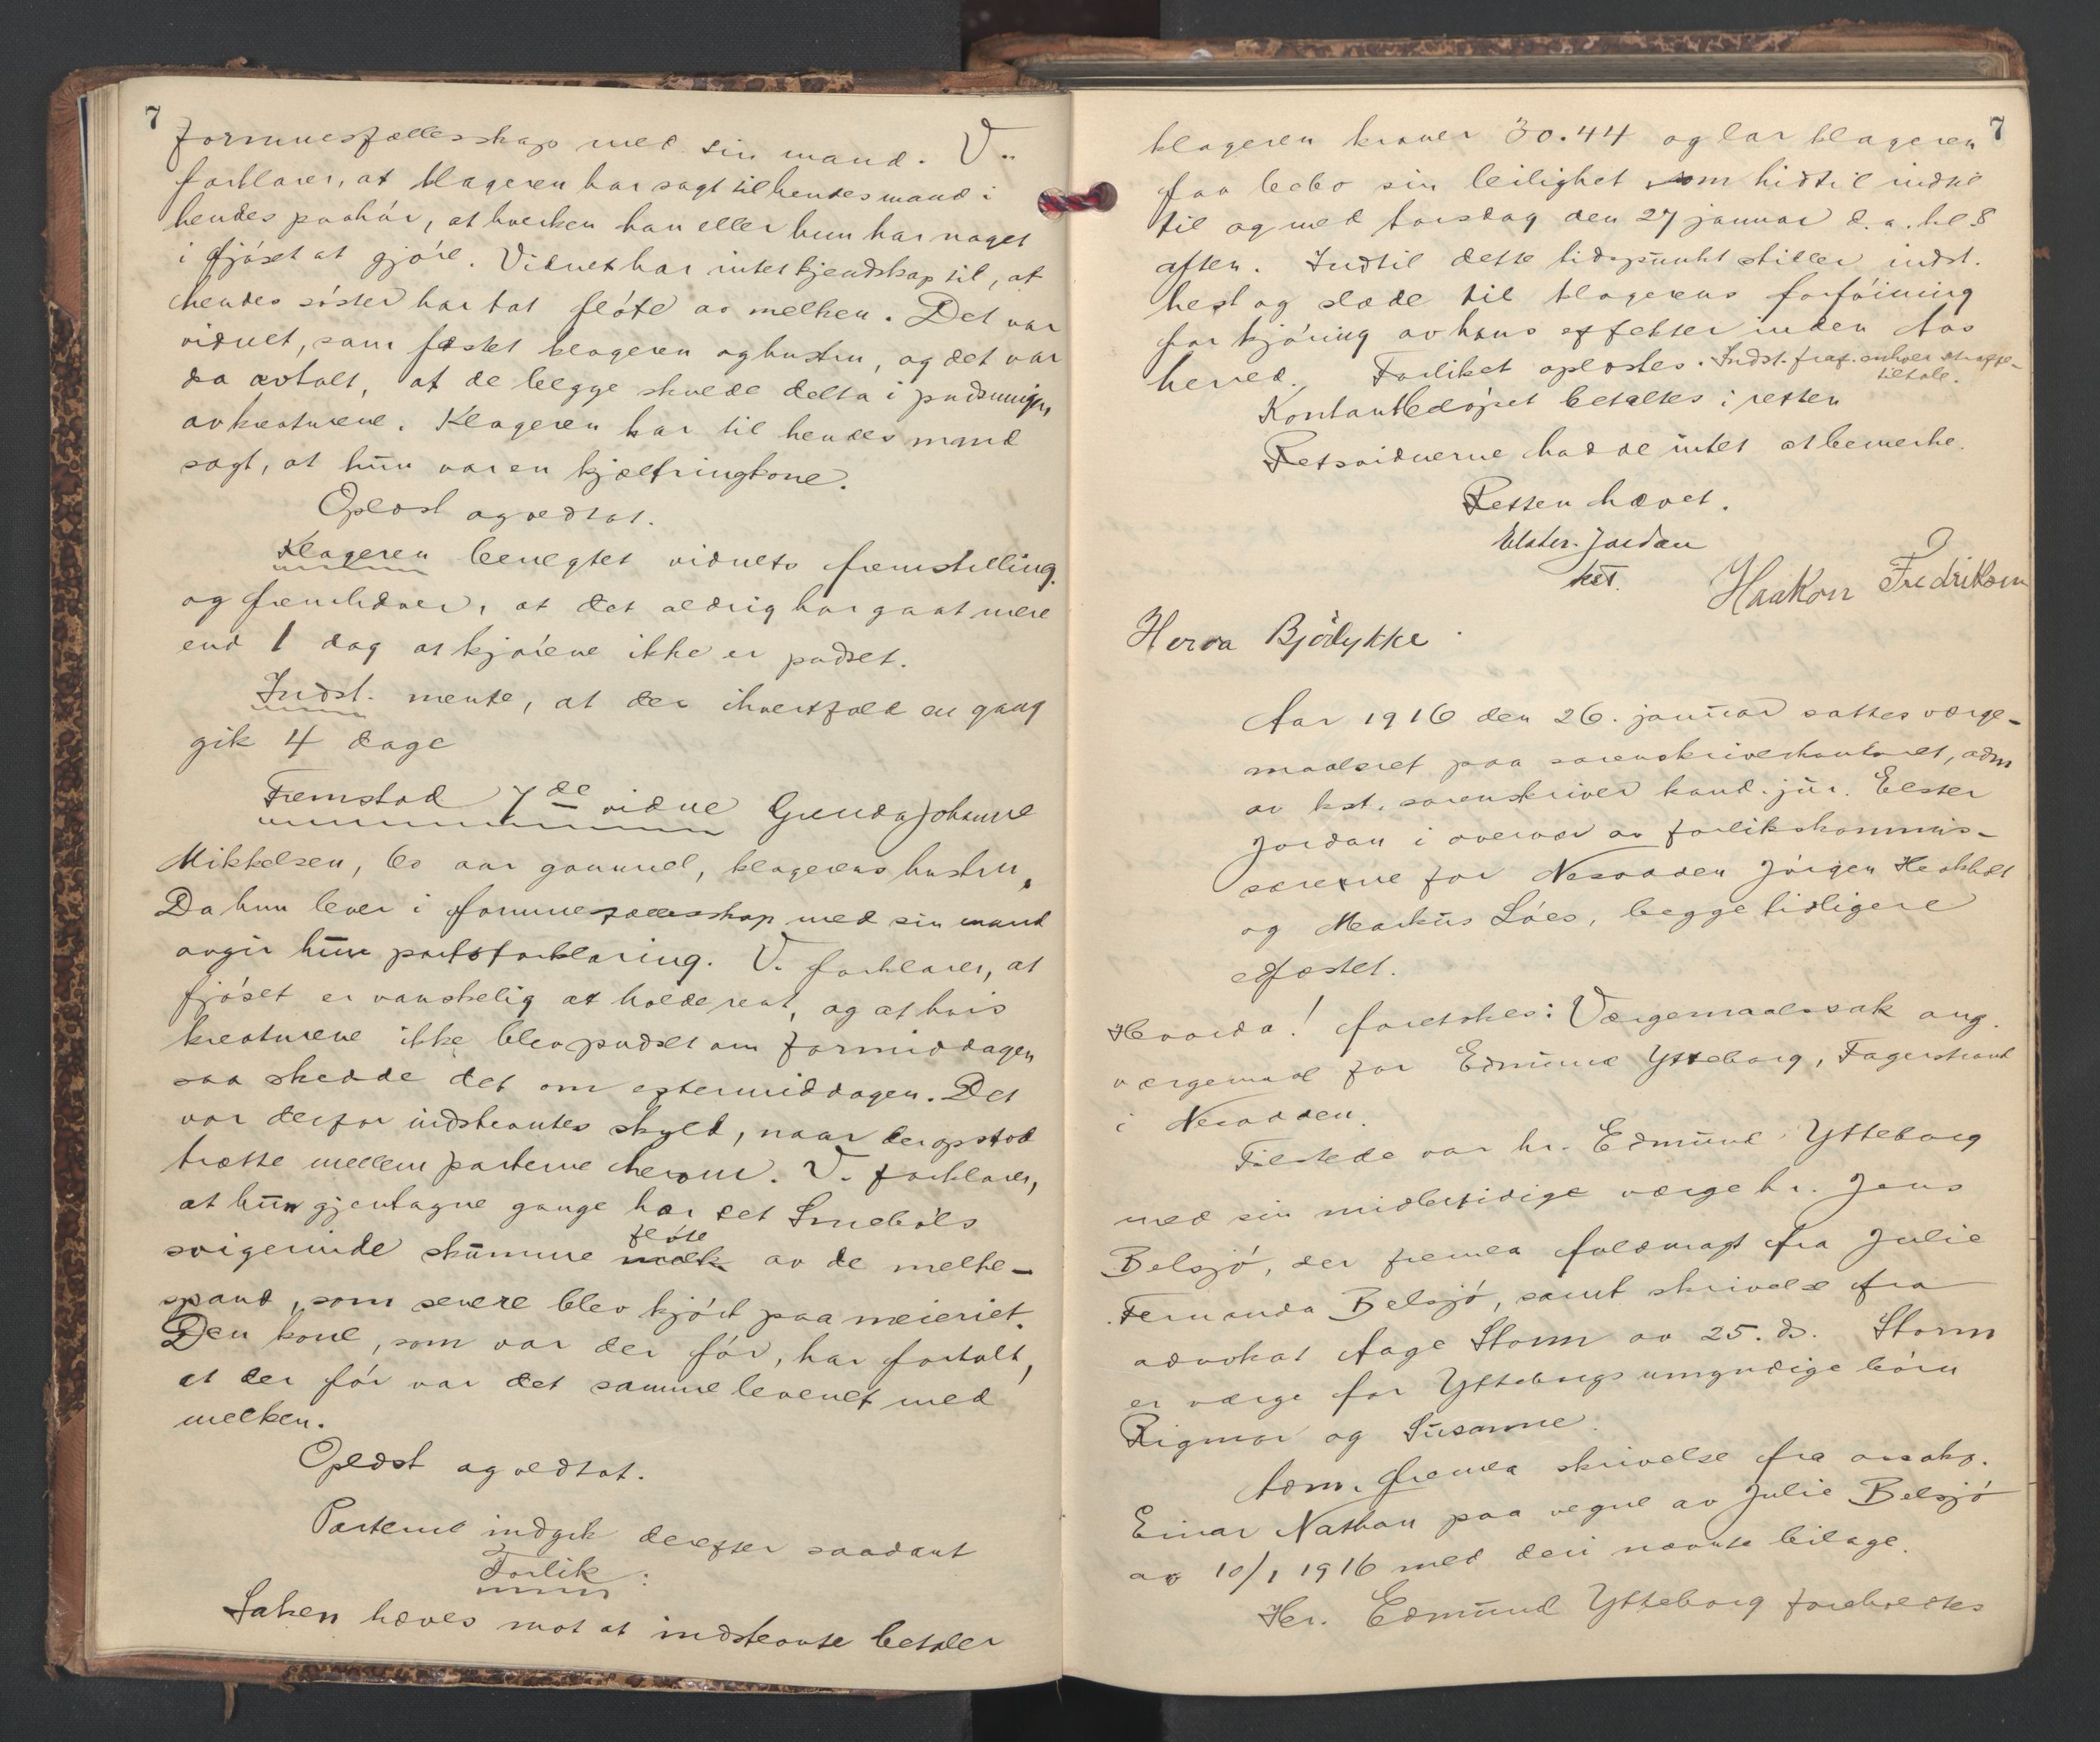 7
formuesfællesskap med sin mand. V.
forklarer, at klageren har sagt til hendes mand i
hendes paahør, at hverken han eller hun har noget
i fjøset at gjøre. Vidnet har intet kjendskap til, at
hendes søster har tat fløte av melken. Det var
vidnet, som fæstet klageren og hustru, og det var
da avtalt, at de begge skulde delta i pudsningen
av kreaturene. Klageren har til hendes mand
sagt, at hun var en kjæltringkone.
Oplæst og vedtat.
Klageren benegtet vidnets fremstilling
og fremholder, at det aldrig har gaat mere
end 1 dag at kjørene ikke er pudset.
Indst. mente, at der ihvertfald en gang
gik 4 dage
Fremstod 7de vidne Gunda Johanne
Mikkelsen, 60 aar gammel, klagerens hustru.
Da hun lever i formuesfællesskap med sin mand
avgir hun partsforklaring. V. forklarer, at
fjøset er vanskelig at holde rent, og at hvis
kreaturene ikke blev pudset om formiddagen
saa skedde det om eftermiddagen. Det
var derfor indstevntes skyld, naar der opstod
trætte mellem parterne herom. V. forklarer,
at hun gjentagne gange har set Smebøls
svigerinde skumme melk fløte av de melke-
spand, som senere blev kjørt paa meieriet.
Den kone, som var der før, har fortalt,
at der før var det samme levenet med
melken.
Oplæst og vedtat.
Parterne indgik derefter saadant
Forlik:
Saken hæves mot at indstevnte betaler
7
klageren kroner 30.44 og lar klageren
faa bebo sin leilighet som hidtil indtil
til og med torsdag den 27 januar d.a. kl 8
aften. Indtil dette tidspunkt stiller indst.
hest og slæde til klagerens forføining
for kjøring av hans effekter inden Aas
herred. Forliket oplæstes. Indst. fraf. enhver straffe-
tiltale.
Kontantbeløpet betaltes i retten
Retsvidnerne hadde intet at bemerke.
Retten hævet.
Elster Jordan
kst.
Haakon Fredriksen
Herva Bjørlykke
Aar 1916 den 26. januar sattes værge-
maalsret paa sorenskriverkontoret, adm
av kst. sorenskriver kand. jur. Elster
Jordan i overvær av forlikskommis-
særerne for Nesodden Jørgen
og Markus Løes, begge tidligere
edfæstet.
Hvorda! foretokes: Værgemaalssak ang.
værgemaal for Edmund Ytteborg, Fagerstrand
i Nesodden.
Tilstede var hr. Edmund Ytteborg
med sin midlertidige værge hr. Jens
Belsjø, der fremla fuldmagt fra Julie
Fernanda Belsjø, samt skrivelse fra
advokat Aage Storm av 25. ds. Storm
er værge for Ytteborgs umyndige børn
Rigmor og Susanne.
Adm. fremla skrivelse fra o.r.sakf.
Einar Nathan paa vegne av Julie Belsjø
av 10/1 1916 med deri nævnte bilage.
Hr. Edmund Ytteborg foreholdtes